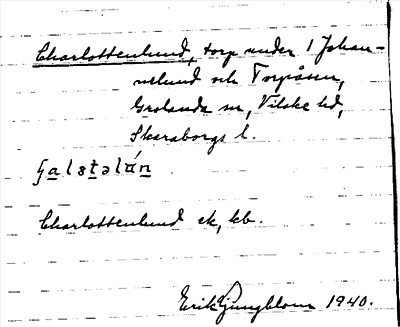 Charlottenlund, torp under 1 Johan-
neslund och Torpåsen,
Grolanda sn, Vilske hd,
Skaraborgs l.
Charlottenlund ek, kb.
Erik Ljungblom 1940.